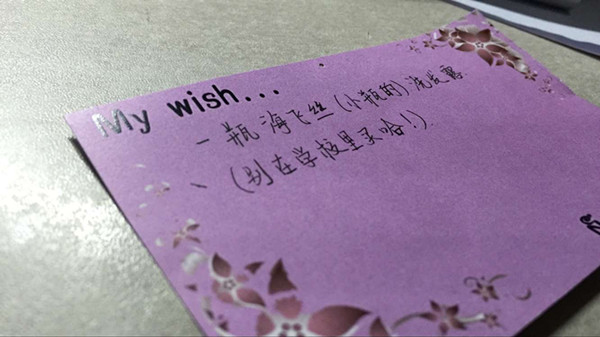 My wish...
一瓶海飞丝(小瓶的)洗发露.
、(别在学校里买哈!).